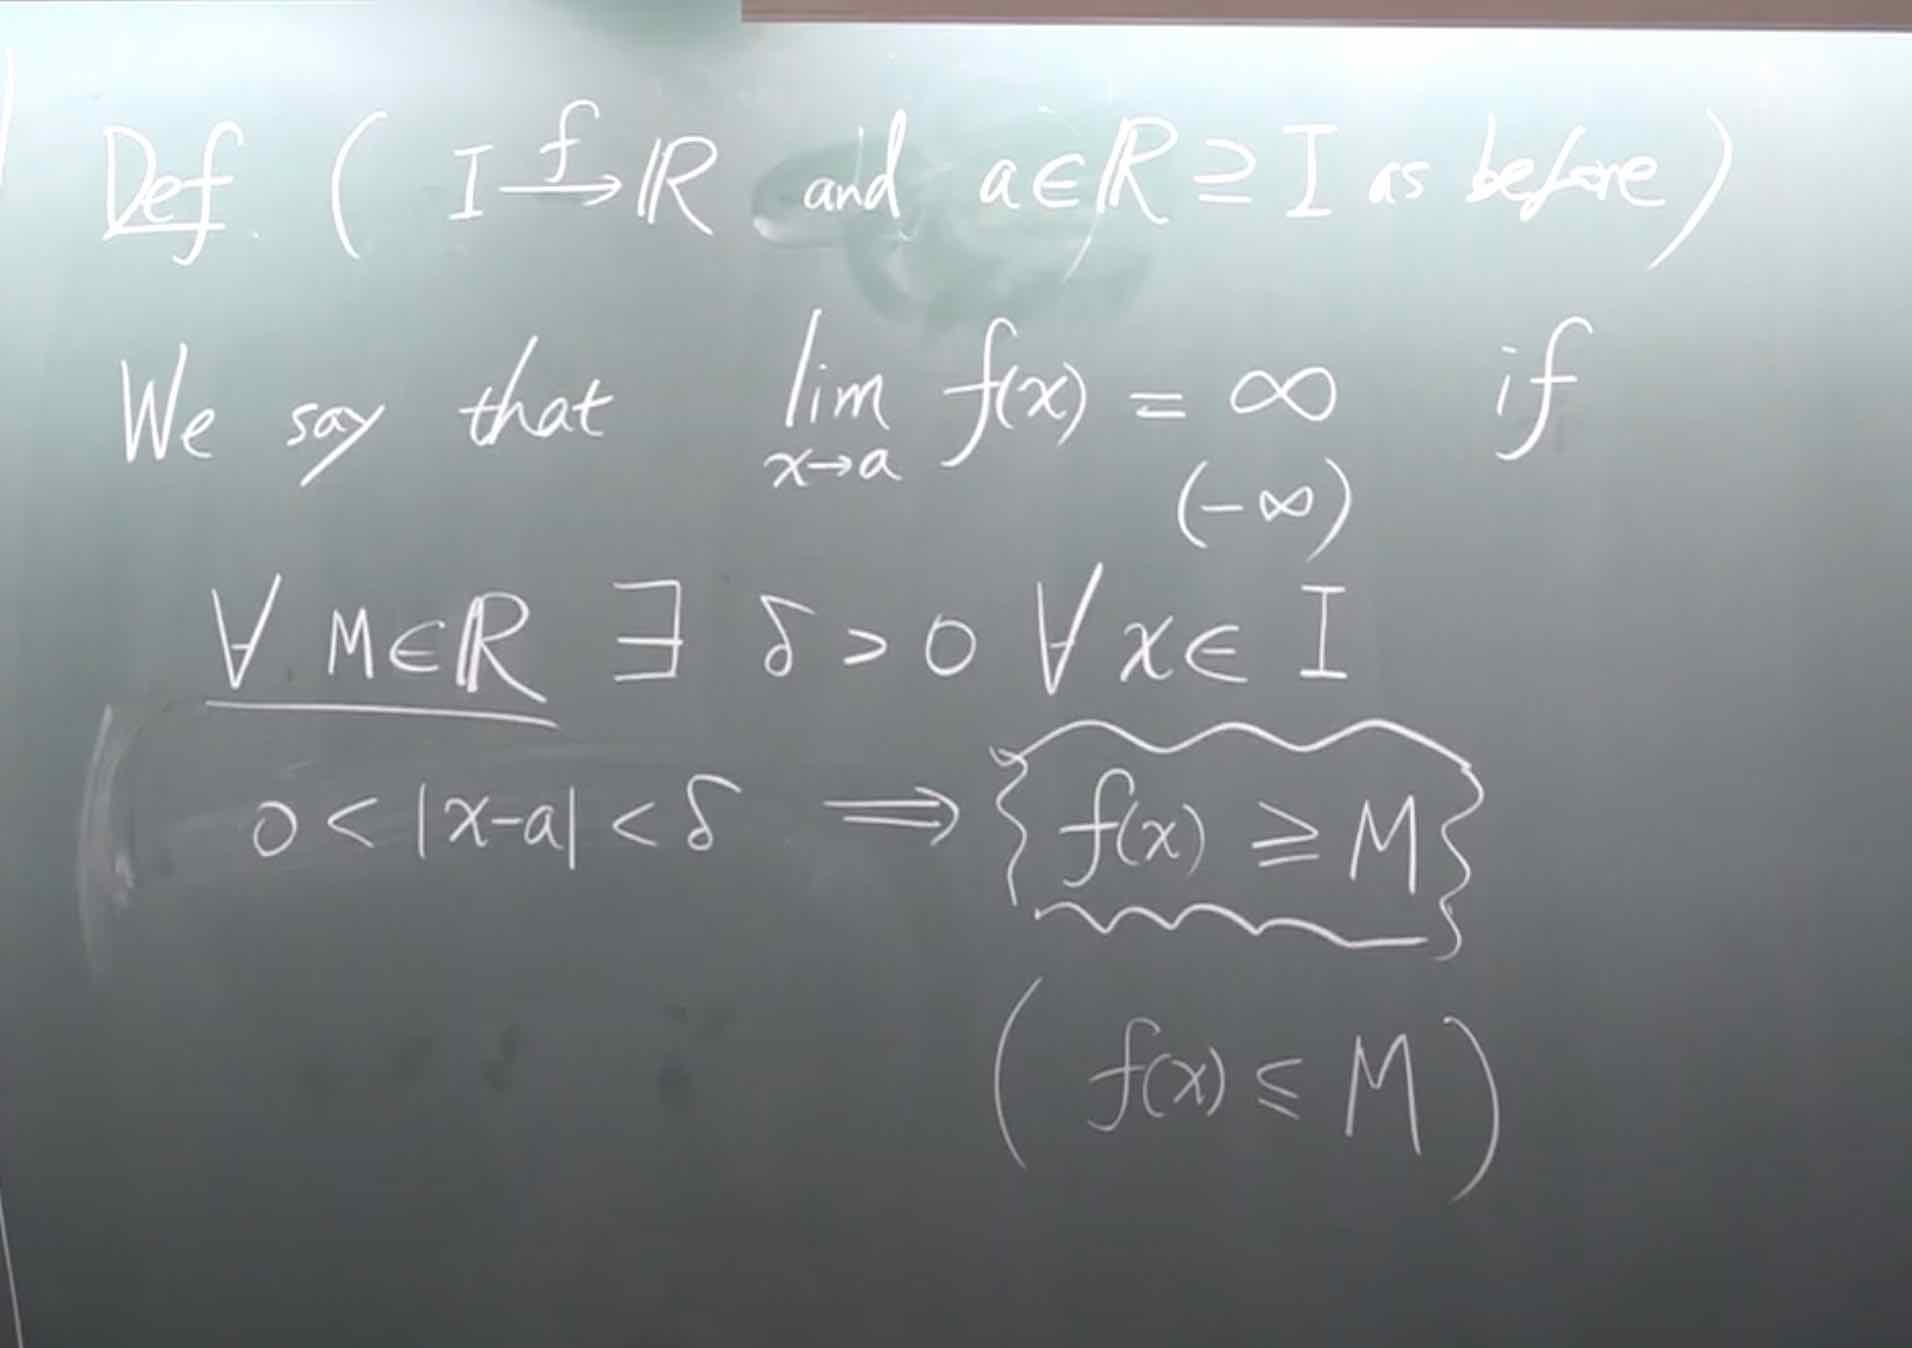 Def. ( I —f→ ℝ and a∈ℝ ⊇ I as before )
We say that lim f(x) = ∞ if
x→a (-∞)
∀ M∈ℝ ∃ δ > 0 ∀ x∈ I
0 < |x-a| < δ ⟹ f(x) ≥ M
( f(x) ≤ M )